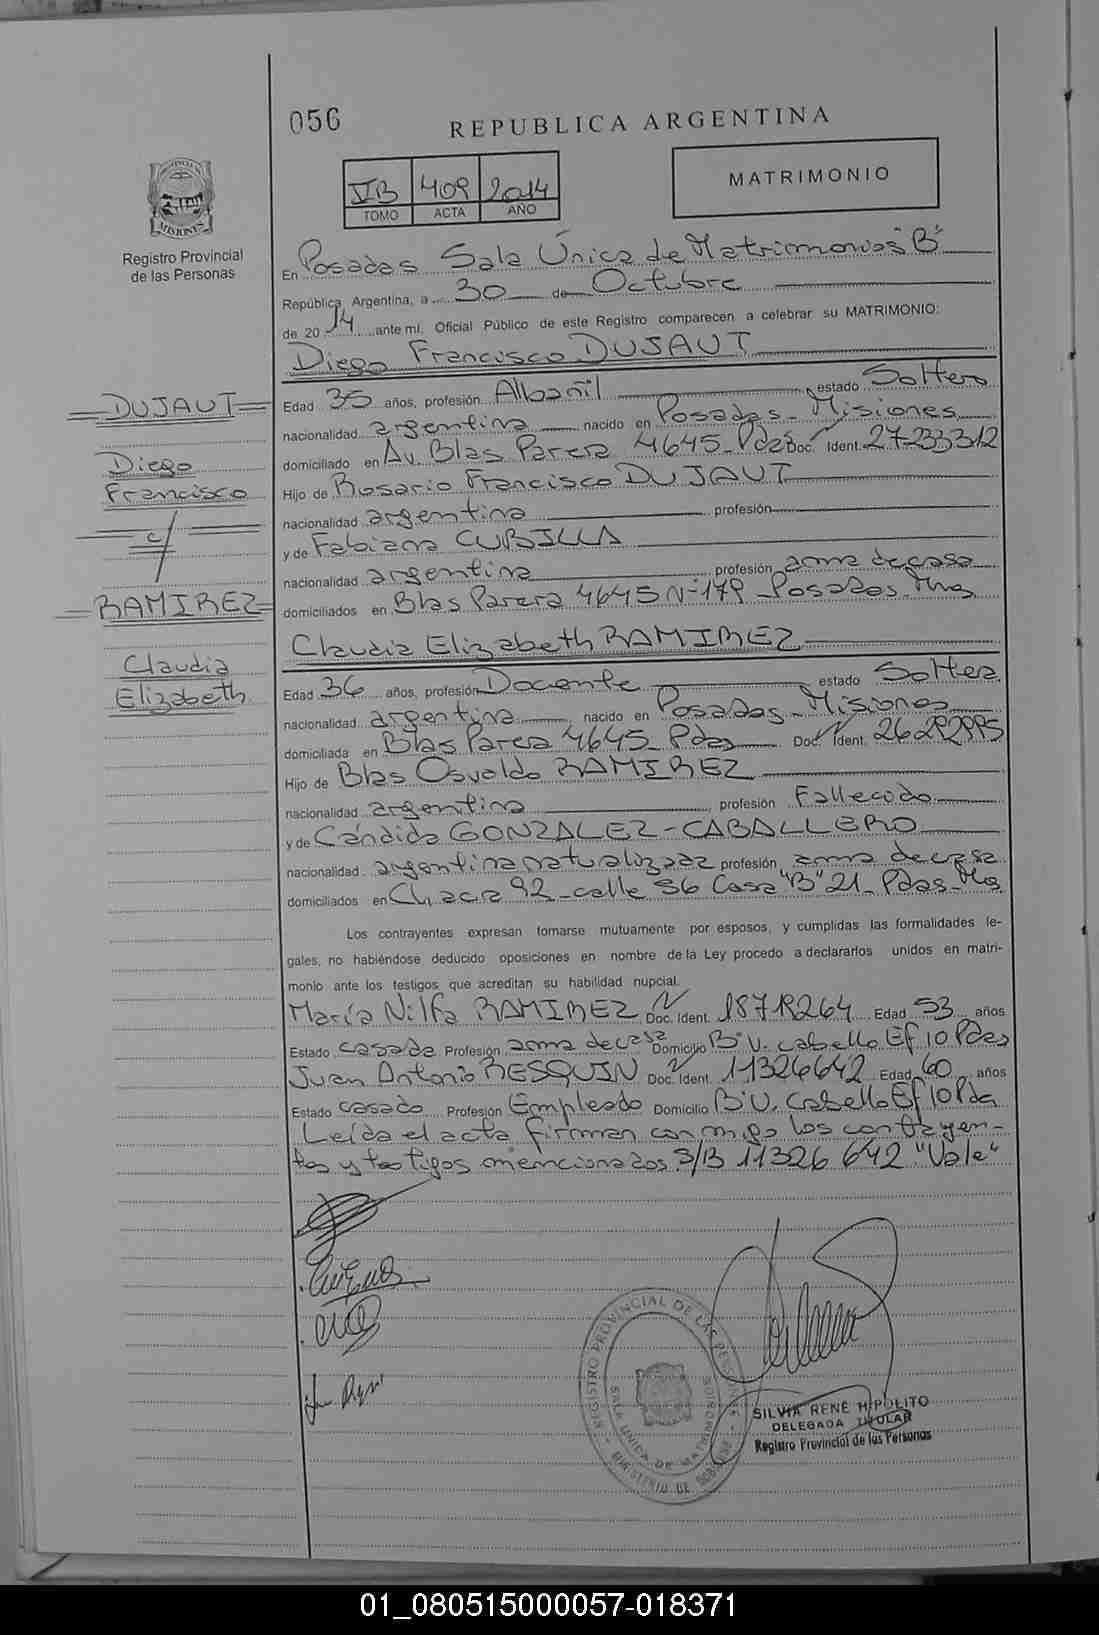 056
REPUBLICA ARGENTINA
VB 409 2014
TOMO ACTA AÑO
MATRIMONIO
Registro Provincial
de las Personas
En Posadas Sala Única de Matrimonios "B"
República Argentina, a 30 de Octubre
de 2014 ante mí. Oficial Público de este Registro comparecen a celebrar su MATRIMONIO:
Diego Francisco DUJAUT
DUJAUT
Diego
Francisco
c/
RAMIREZ
Claudia
Elizabeth
Edad 35 años, profesión Albañil estado Soltero
nacionalidad argentina nacido en Posadas - Misiones
domiciliado en Av. Blas Parera 4645 - Pdas Doc. Ident. 27-233312
Hijo de Rosario Francisco DUJAUT
nacionalidad argentina profesión
y de Fabiana CUBILLA
nacionalidad argentina profesión ama de casa
domiciliados en Blas Parera 4645 N-179 - Posadas Mns
Claudia Elizabeth RAMIREZ
Edad 36 años, profesión Docente estado Soltera
nacionalidad argentina nacido en Posadas - Misiones
domiciliada en Blas Parera 4645 - Pdas Doc. Ident. 26292995
Hijo de Blas Osvaldo RAMIREZ
nacionalidad argentina profesión Fallecido
y de Cándida GONZALEZ - CABALLERO
nacionalidad argentina naturalizada profesión ama de casa
domiciliados en Chacra 92 - calle 56 Casa "B" 21 - Pdas - Mns
Los contrayentes expresan tomarse mutuamente por esposos, y cumplidas las formalidades le-
gales, no habiéndose deducido oposiciones en nombre de la Ley procedo a declararlos unidos en matri-
monio ante los testigos que acreditan su habilidad nupcial.
María Nilfa RAMIREZ Doc. Ident. Edad 53 años
Estado casada Profesión ama de casa Domicilio B° V. cabello Ef 10 Pdas
Juan Antonio RESQUIN Doc. Ident. 11326642 Edad 60 años
Estado casado Profesión Empleado Domicilio B° V. Cabello Ef 10 Pda
Leída el acta firman conmigo los contrayen-
tes y testigos mencionados S/B 11326642 "Vale"
REGISTRO PROVINCIAL DE LAS PERSONAS
SALA UNICA DE MATRIMONIOS
MINISTERIO DE GOBIERNO
SILVIA RENE HIPOLITO
DELEGADA TITULAR
Registro Provincial de las Personas
01_080515000057-018371